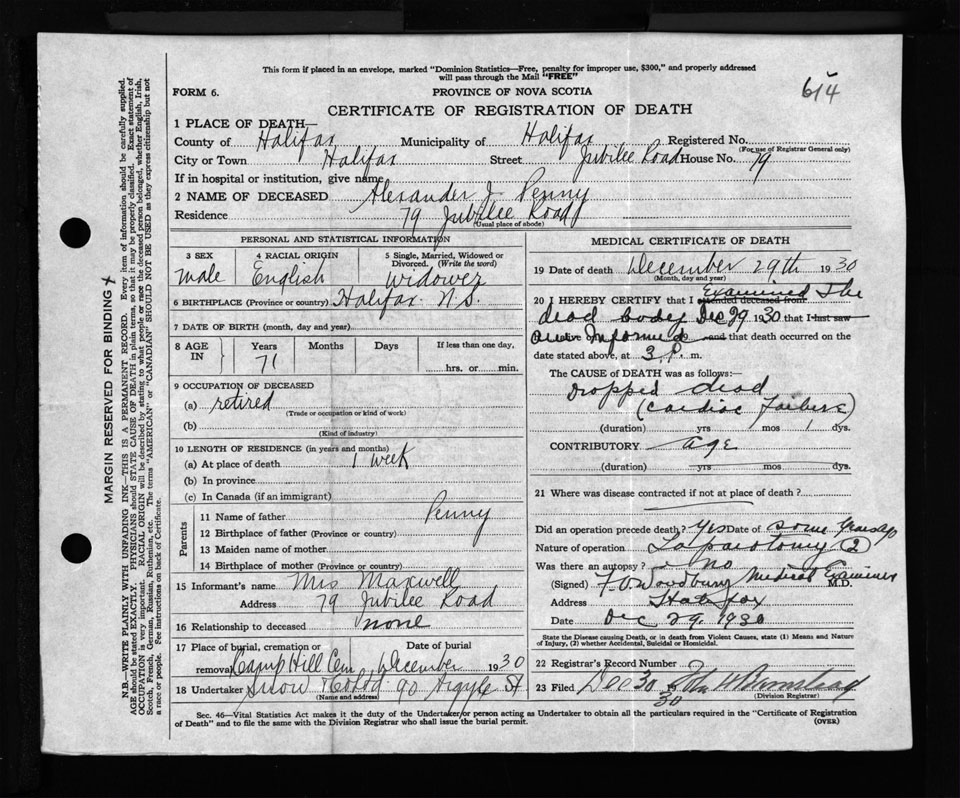 This form if placed in an envelope, marked "Dominion Statistics—Free, penalty for improper use, $300," and properly addressed
will pass through the Mail "FREE"
614
FORM 6.
PROVINCE OF NOVA SCOTIA
CERTIFICATE OF REGISTRATION OF DEATH
1 PLACE OF DEATH—
County of Halifax Municipality of Halifax Registered No.
(For use of Registrar General only)
City or Town Halifax Street Jubilee Road House No. 79
If in hospital or institution, give name
2 NAME OF DECEASED Alexander J. Penny
Residence 79 Jubilee Road
(Usual place of abode)
PERSONAL AND STATISTICAL INFORMATION
3 SEX 4 RACIAL ORIGIN 5 Single, Married, Widowed or
Divorced. (Write the word)
Male English Widower
6 BIRTHPLACE (Province or country) Halifax N.S.
7 DATE OF BIRTH (month, day and year)
8 AGE Years Months Days If less than one day,
IN 71 hrs. or min.
9 OCCUPATION OF DECEASED
(a) retired
(Trade or occupation or kind of work)
(b)
(Kind of industry)
10 LENGTH OF RESIDENCE (in years and months)
(a) At place of death 1 week
(b) In province
(c) In Canada (if an immigrant)
Parents
11 Name of father Penny
12 Birthplace of father (Province or country)
13 Maiden name of mother
14 Birthplace of mother (Province or country)
15 Informant's name Mrs Maxwell
Address 79 Jubilee Road
16 Relationship to deceased none
17 Place of burial, cremation or Date of burial
removal Camp Hill Cem December 1930
18 Undertaker Snow & Co Ltd 90 Argyle St
(Name and address)
MEDICAL CERTIFICATE OF DEATH
19 Date of death December 29th 1930
(Month, day and year)
20 I HEREBY CERTIFY that I attended deceased from Examined the
dead body Dec 29 1930 that I last saw
alive on Informed and that death occurred on
date stated above, at 3 P. m.
The CAUSE of DEATH was as follows:—
Dropped dead
(Cardiac Failure)
(duration) yrs mos dys.
CONTRIBUTORY age
(duration) yrs mos dys.
21 Where was disease contracted if not at place of death?
Did an operation precede death? Yes Date of some years ago
Nature of operation Laparotomy (2)
Was there an autopsy? No
(Signed) Woodbury Medical Examiner M.D.
Address Halifax
Date Dec 29, 1930
State the Disease causing Death, or in death from Violent Causes, state (1) Means and Nature
of Injury, (2) whether Accidental, Suicidal or Homicidal.
22 Registrar's Record Number
23 Filed Dec 30 30 John
(Division Registrar)
Sec. 46—Vital Statistics Act makes it the duty of the Undertaker/or person acting as Undertaker to obtain all the particulars required in the "Certificate of Registration
of Death" and to file the same with the Division Registrar who shall issue the burial permit.
(OVER)
MARGIN RESERVED FOR BINDING
N.B.—WRITE PLAINLY WITH UNFADING INK—THIS IS A PERMANENT RECORD. Every item of information should be carefully supplied.
AGE should be stated EXACTLY. PHYSICIANS should STATE CAUSE OF DEATH in plain terms, so that it may be properly classified. Exact statement of
OCCUPATION is very important. RACIAL ORIGIN will be described by stating to what people or race the deceased person belonged, whether English, Irish,
Scotch, French, German, Russian, Ruthenian, etc. The terms "AMERICAN" or "CANADIAN" SHOULD NOT BE USED as they express citizenship but not
a race or people. See instructions on back of Certificate.